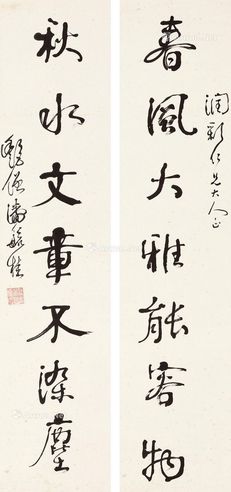 春風大雅能容物
潤彰仁兄大人正
秋水文章不染塵
潘毓桂